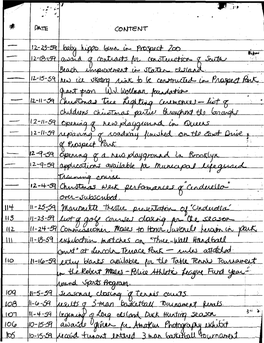 # DATE CONTENT
— 12-23-59 baby hippo born in Prospect Zoo
— 12-18-59 award of contracts for construction of South
Beach improvement in Staten Island
— 12-15-59 new ice skating rink to be constructed in Prospect Park
grant from W.J. Wollman foundation
— 12-11-59 Christmas tree lighting ceremonies — list of
childrens christmas parties throughout the boroughs
— 12-11-59 opening of new playground in Queens
— 12-11-59 repaving of roadway finished on the East Drive
of Prospect Park
12-9-59 opening of a new playground in Brooklyn
— 12-7-59 applications available for municipal lifeguard
training course
— 12-4-59 Christmas week performances of "Cinderella"
over-subscribed
114 11-25-59 Marionette Theatre presentation of "Cinderella"
113 11-25-59 list of golf courses closing for the season
112 11-24-59 Commissioner Moses to honor juvenile heroism in park
111 11-18-59 exhibition matches on "Three-Wall Handball
court" at Lincoln Terrace Park — rules attached
110 11-16-59 entry blanks available for the Table Tennis Tournament
in the Robert Moses - Police Athletic League Fund year-
round Sports Program
109 11-9-59 seasonal closing of tennis courts
108 11-6-59 results of 3-man basketball Tournament finals
107 11-4-59 beginning of Long Island Duck Hunting season
106 10-15-59 awards given for Amateur Photography exhibit
105 10-15-59 record turnout entered 3 man basketball Tournament